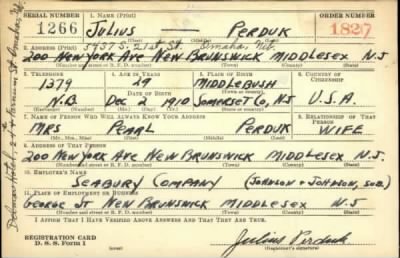 SERIAL NUMBER 1. NAME (Print) ORDER NUMBER
1266 JULIUS PERDUK 1827
(First) (Middle) (Last)
5937 S. 21st St. Omaha, Neb.
2. ADDRESS (Print)
200 NEW YORK AVE NEW BRUNSWICK MIDDLESEX N.J
(Number and street or R. F. D. number) (Town) (County) (State)
3. TELEPHONE 4. AGE IN YEARS 5. PLACE OF BIRTH 6. COUNTRY OF CITIZENSHIP
1379 29 MIDDLEBUSH
DATE OF BIRTH (Town or county)
N.B. DEC 2 1910 SOMERSET CO, NJ U.S.A.
(Exchange) (Mo.) (Day) (Yr.) (State or country)
7. NAME OF PERSON WHO WILL ALWAYS KNOW YOUR ADDRESS 8. RELATIONSHIP OF THAT PERSON
MRS PEARL PERDUK WIFE
(Mr., Mrs., Miss) (First) (Middle) (Last)
9. ADDRESS OF THAT PERSON
200 NEW YORK AVE NEW BRUNSWICK MIDDLESEX N.J
(Number and street or R. F. D. number) (Town) (County) (State)
10. EMPLOYER'S NAME
SEABURY COMPANY (JOHNSON & JOHNSON, SUB.)
11. PLACE OF EMPLOYMENT OR BUSINESS
GEORGE ST NEW BRUNSWICK MIDDLESEX N.J
(Number and street or R. F. D. number) (Town) (County) (State)
I AFFIRM THAT I HAVE VERIFIED ABOVE ANSWERS AND THAT THEY ARE TRUE.
REGISTRATION CARD
D. S. S. Form 1
Julius Perduk
(Registrant's signature)